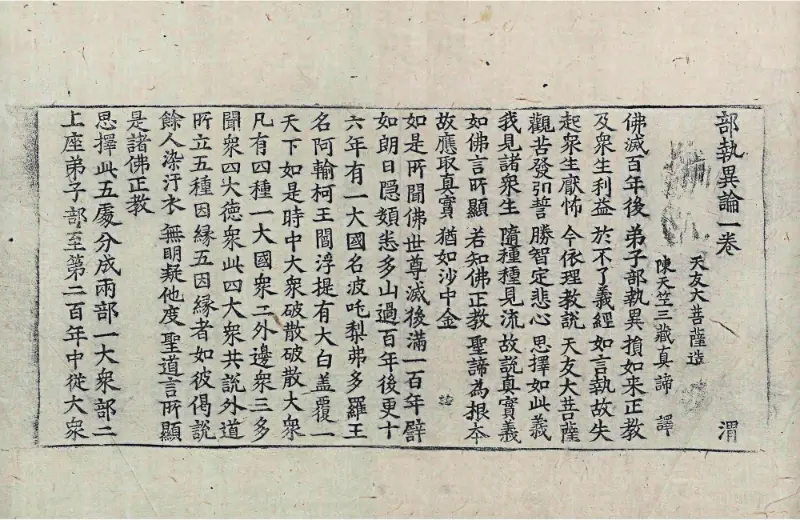 部執異論一卷 渭
天友大菩薩造
陳天竺三藏真諦 譯
佛滅百年後 弟子部執異 損如来正教
及衆生利益 於不了義經 如言執故失
起衆生猒怖 今依理教說 天友大菩薩
觀苦發弘誓 勝智定悲心 思擇如此義
我見諸衆生 隨種種見流 故說真實義
如佛言所顯 若知佛正教 聖諦為根本
故應取真實 猶如沙中金
如是所聞佛世尊滅後滿一百年譬
如朗日隱頞悉多山過百年後更十
六年有一大國名波吒梨弗多羅王
名阿輸柯王閻浮提有大白盖覆一
天下如是時中大衆破散破散大衆
凡有四種一大國衆二外邊衆三多
聞衆四大徳衆此四大衆共說外道
所立五種因縁五因縁者如彼偈説
餘人染汙衣 無明疑他度 聖道言所顯
是諸佛正教
思擇此五處分成兩部一大衆部二
上座弟子部至第二百年中從大衆